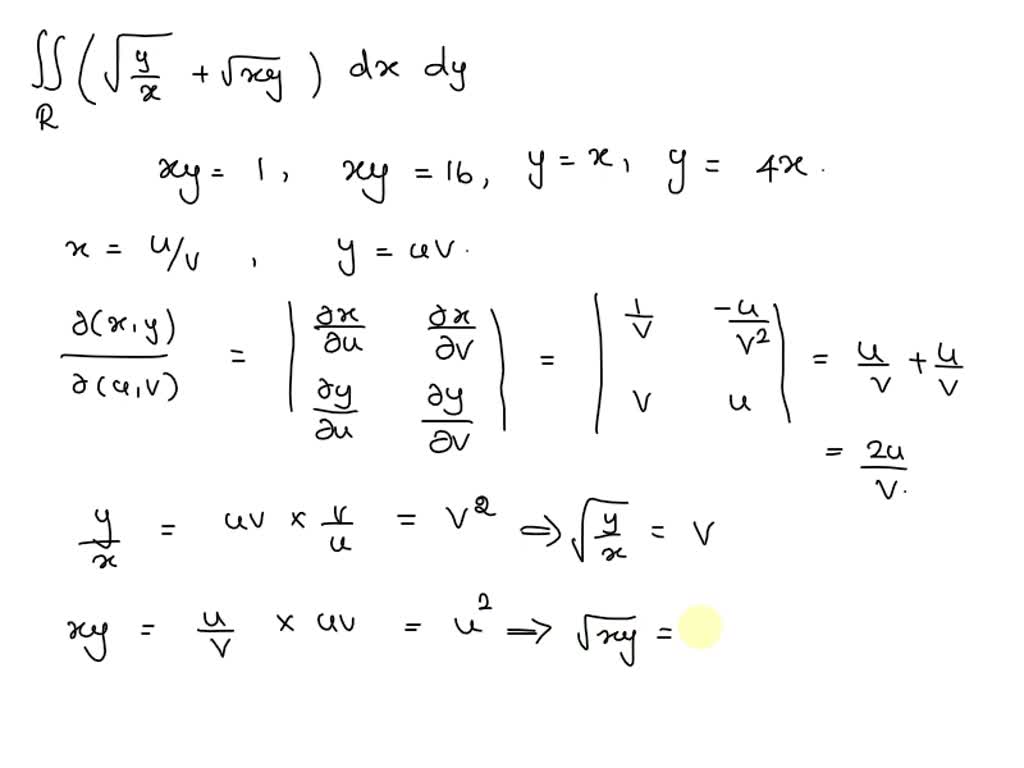 ∬_R ( √(y/x) + √xy ) dx dy
xy = 1, xy = 16, y = x, y = 4x.
x = u/v, y = uv.
∂(x,y)/∂(u,v) = | ∂x/∂u ∂x/∂v ; ∂y/∂u ∂y/∂v | = | 1/v -u/v² ; v u | = u/v + u/v
= 2u/v.
y/x = uv × v/u = v² ⇒ √(y/x) = v
xy = u/v × uv = u² ⇒ √xy =